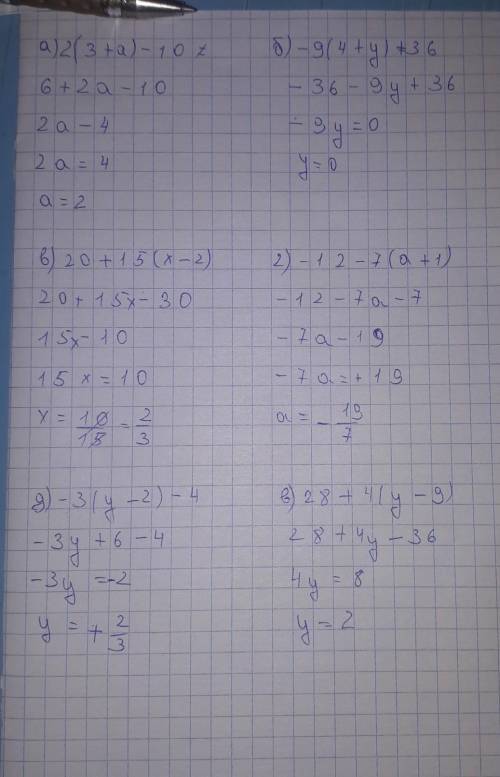 а) 2(3+a)-10 z
6+2a-10
2a-4
2a=4
a=2
б) -9(4+y)+36
-36-9y+36
-9y=0
y=0
в) 20+15(x-2)
20+15x-30
15x-10
15x=10
x=10/15=2/3
г) -12-7(a+1)
-12-7a-7
-7a-19
-7a=+19
a=-19/7
д) -3(y-2)-4
-3y+6-4
-3y=-2
y=+2/3
е) 28+4(y-9)
28+4y-36
4y=8
y=2